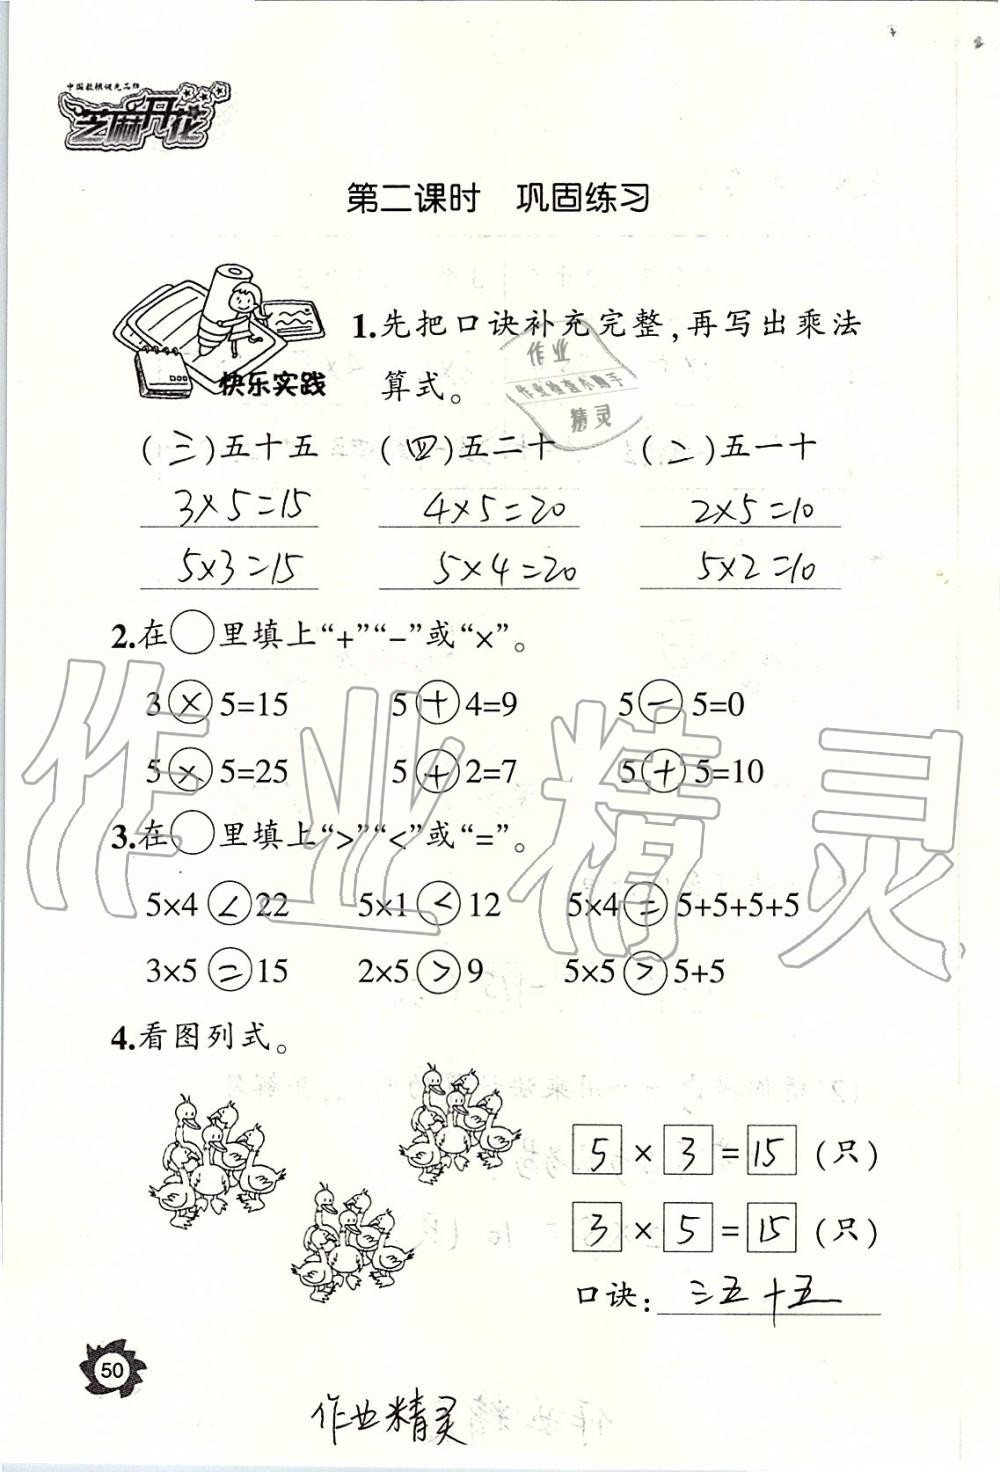 中国教辅领先品牌
芝麻开花
第二课时 巩固练习
快乐实践
1.先把口诀补充完整,再写出乘法
算式。
(三)五十五 (四)五二十 (二)五一十
3×5=15 4×5=20 2×5=10
5×3=15 5×4=20 5×2=10
2.在○里填上“+”“-”或“×”。
3×5=15 5+4=9 5-5=0
5×5=25 5+2=7 5+5=10
3.在○里填上“>”“<”或“=”。
5×4<22 5×1<12 5×4=5+5+5+5
3×5=15 2×5>9 5×5>5+5
4.看图列式。
5×3=15(只)
3×5=15(只)
口诀:三五十五
50
作业精灵
作业精灵
作业
作业检查小助手
精灵